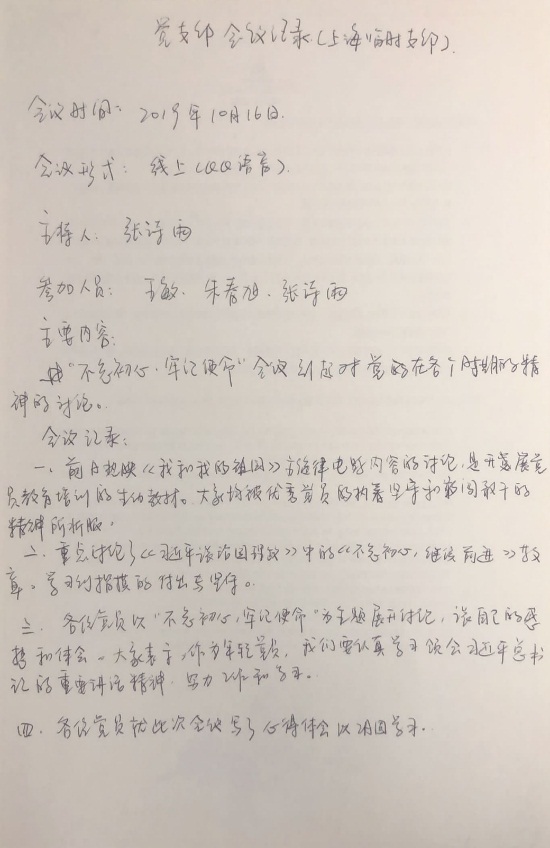 党支部会议记录(上海临时支部).
会议时间: 2019年10月16日.
会议形式: 线上(QQ语音).
主持人: 张诗雨
参加人员: 王敏、朱春旭、张诗雨
主要内容:
由"不忘初心、牢记使命"会议引起对党的在各个时期的精
神的讨论。
会议记录:
一、前日热映《我和我的祖国》主旋律电影内容的讨论,是开展党
员教育培训的生动教材。大家均被优秀党员的执着坚守和敢干的
精神所折服.
二、重点讨论了《习近平谈治国理政》中的《不忘初心,继续前进》文
章。学习的付出与坚守。
三、各位党员以"不忘初心,牢记使命"为主题展开讨论,谈自己的感
悟和体会。大家表示,作为年轻党员,我们要认真学习领会习近平总书
记的重要讲话精神.努力工作和学习。
四、各位党员就此次会议写了心得体会以巩固学习.